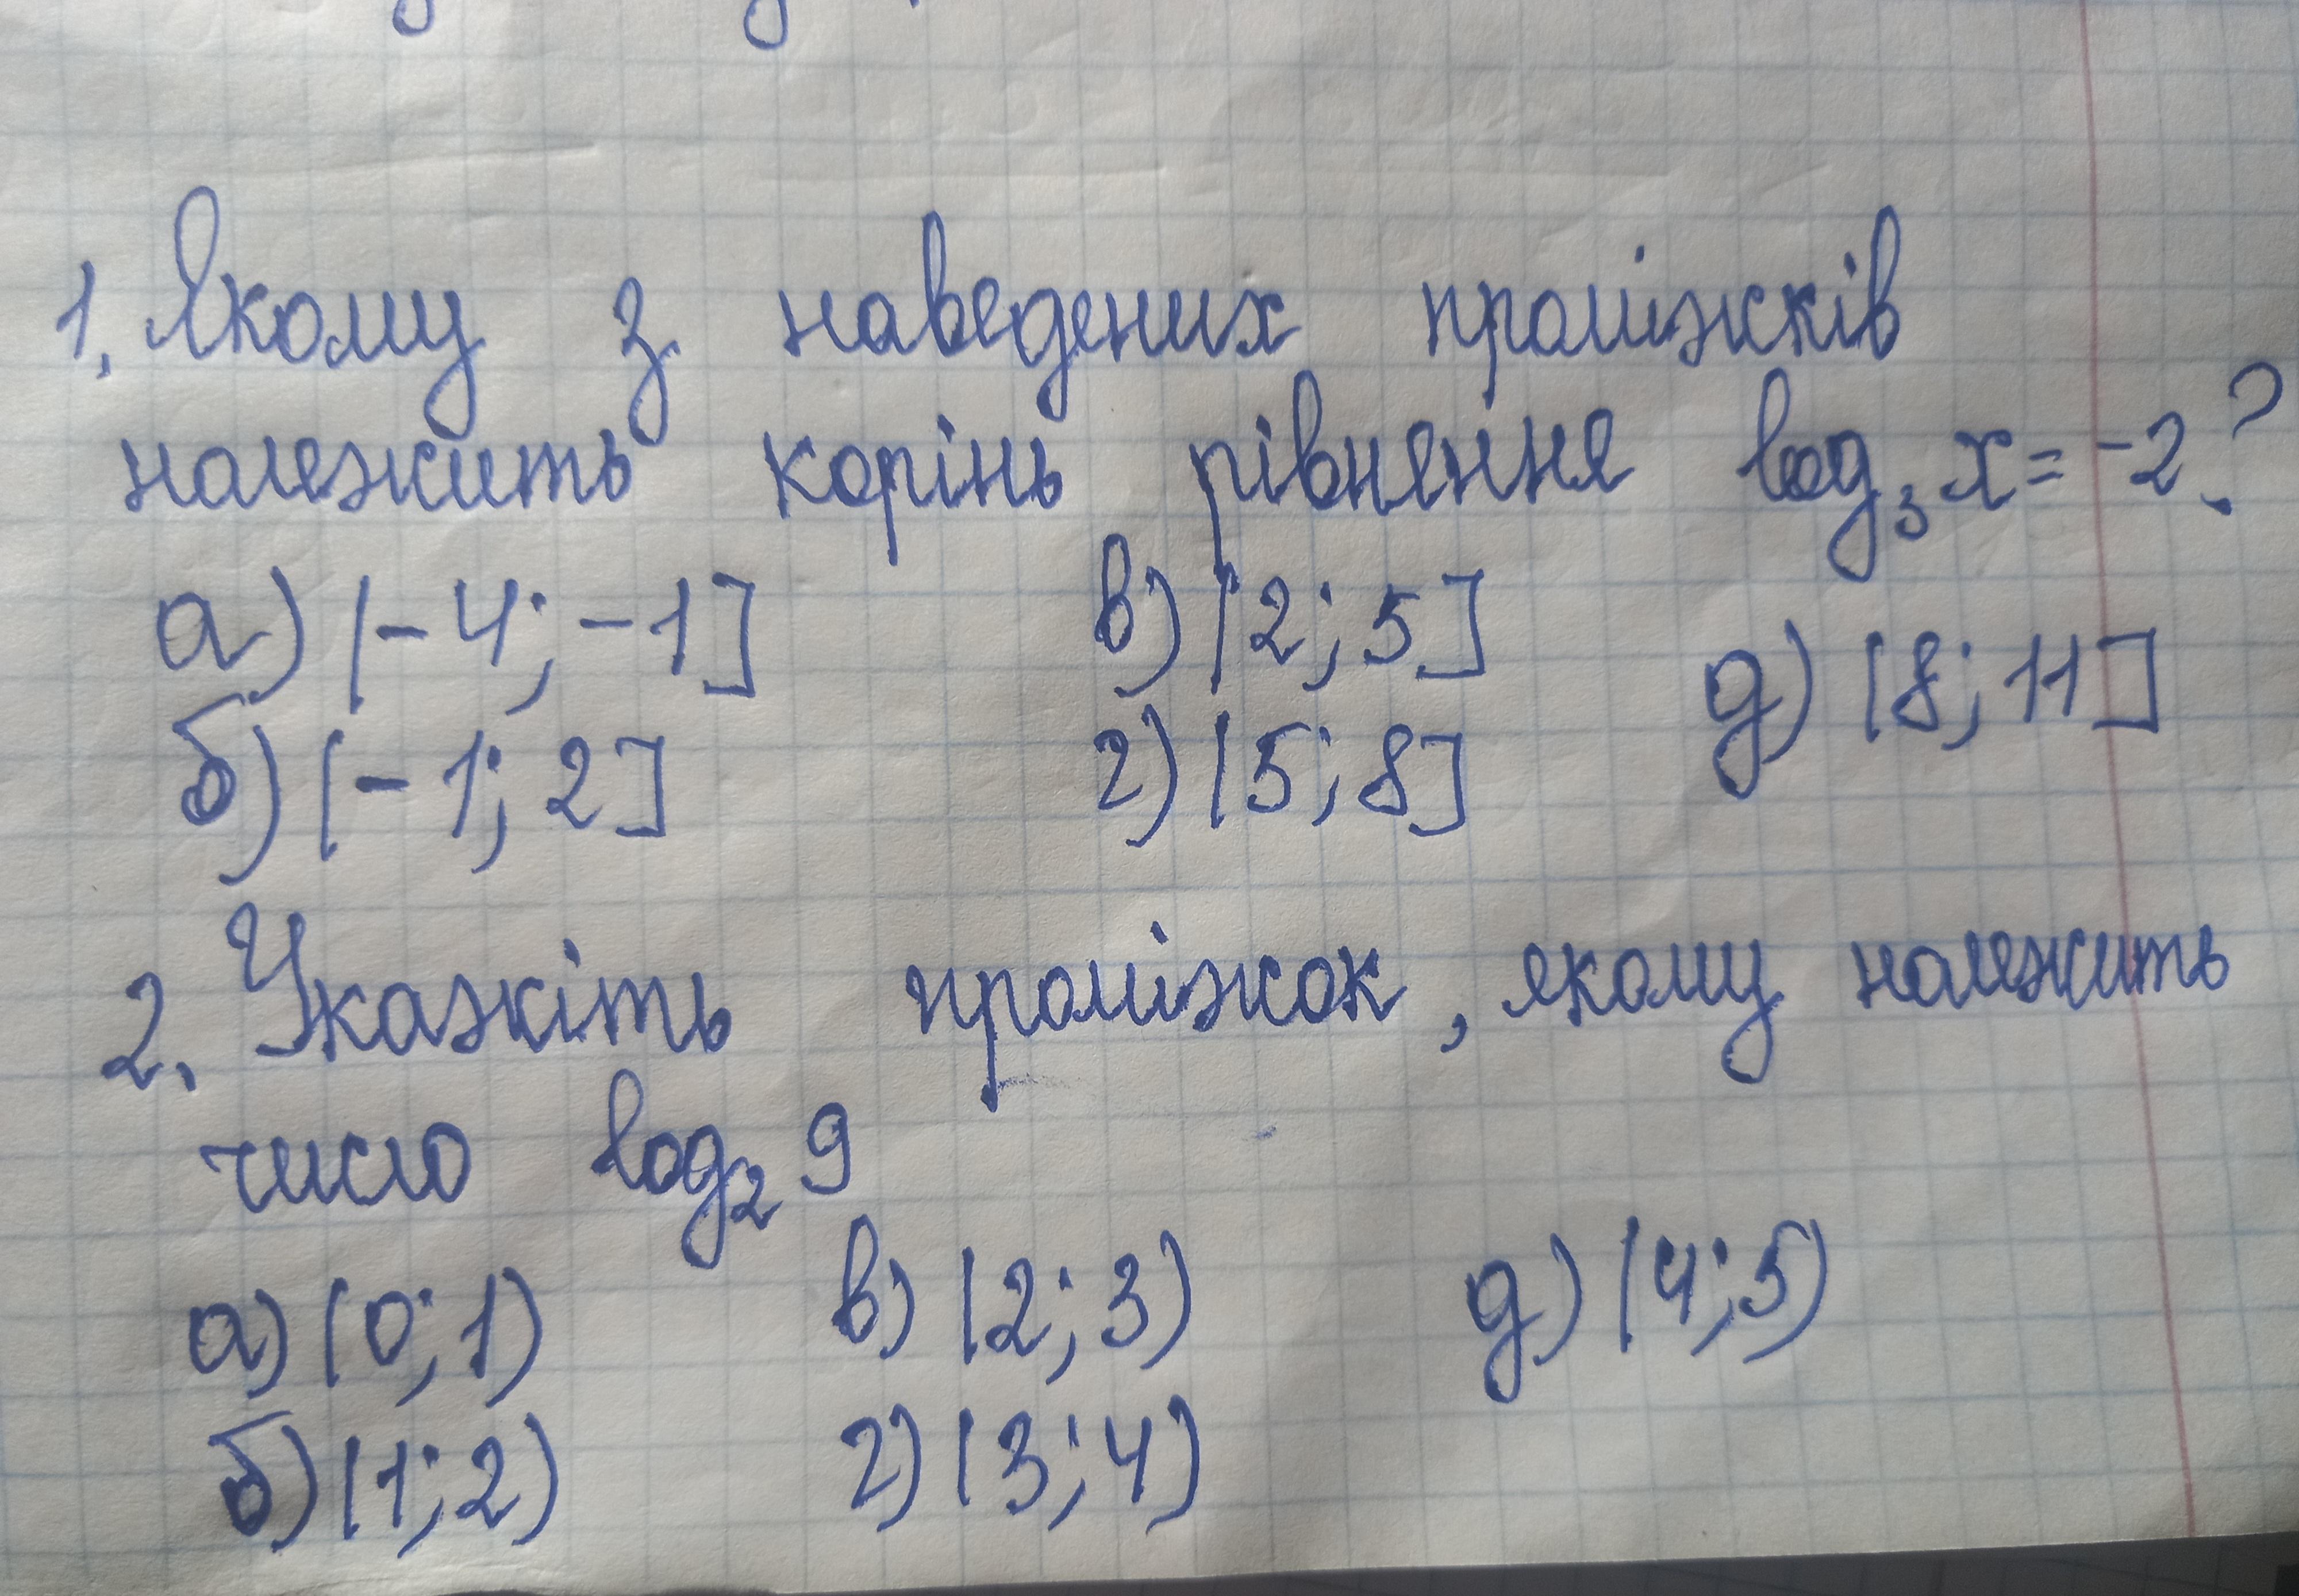 1. Якому з наведених проміжків
належить корінь рівняння log₃ x = -2?
а) [-4; -1]
в) [2; 5]
д) [8; 11]
б) [-1; 2]
г) [5; 8]
2. Укажіть проміжок, якому належить
число log₂ 9
а) [0; 1)
в) [2; 3)
д) [4; 5)
б) [1; 2)
г) [3; 4)